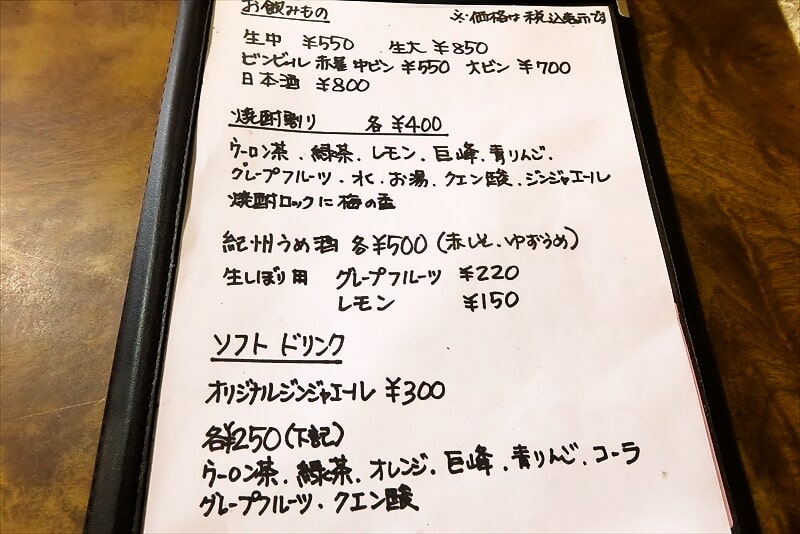 お飲みもの ※価格は税込表示です
生中 ¥550 生大 ¥850
ビンビール 赤星 中ビン ¥550 大ビン ¥700
日本酒 ¥800
焼酎割り 各 ¥400
ウーロン茶.緑茶.レモン.巨峰.青りんご.
グレープフルーツ.水.お湯.クエン酸.ジンジャエール
焼酎ロックに梅の香
紀州うめ酒 各¥500(赤しそ.ゆずうめ)
生しぼり用 グレープフルーツ ¥220
レモン ¥150
ソフト ドリンク
オリジナルジンジャエール ¥300
各¥250(下記)
ウーロン茶.緑茶.オレンジ.巨峰.青りんご.コーラ
グレープフルーツ.クエン酸